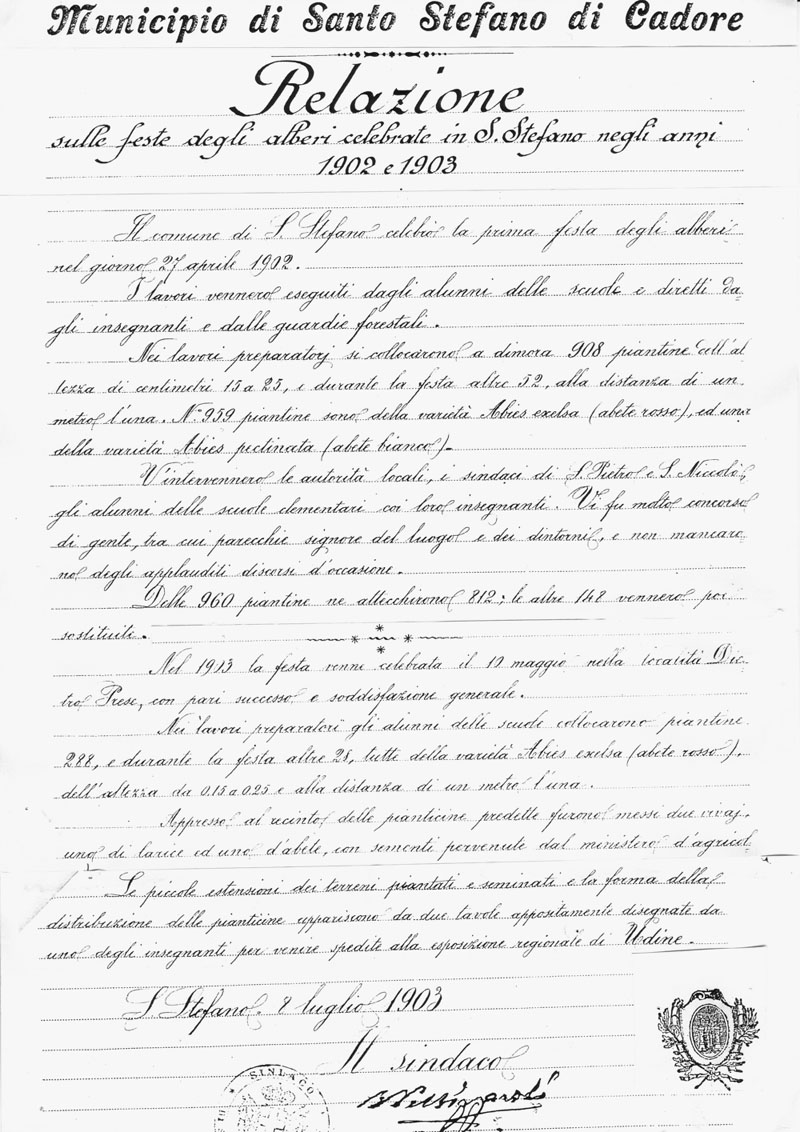 Municipio di Santo Stefano di Cadore
Relazione
sulle feste degli alberi celebrate in S. Stefano negli anni
1902 e 1903
Il comune di S. Stefano celebrò la prima festa degli alberi
nel giorno 27 aprile 1902.
I lavori vennero eseguiti dagli alunni delle scuole e diretti da=
gli insegnanti e dalle guardie forestali.
Nei lavori preparatorj si collocarono a dimora 908 piantine dell'al
tezza di centimetri 15 a 25, e durante la festa altre 52, alla distanza di un
metro l'una. N.° 959 piantine sono della varietà Abies exelsa (abete rosso), ed una
della varietà Abies pectinata (abete bianco).-
V'intervennero le autorità locali, i sindaci di S. Pietro e S. Niccolò,
gli alunni delle scuole elementari coi loro insegnanti. Vi fu molto concorso
di gente, tra cui parecchie signore del luogo e dei dintorni, e non mancaro
no degli applauditi discorsi d'occasione.
Delle 960 piantine ne attecchirono 812; le altre 148 vennero poi
sostituite.
Nel 1903 la festa venne celebrata il 10 maggio nella località Die-
tro Prese, con pari successo e soddisfazione generale.
Nei lavori preparatori gli alunni delle scuole collocarono piantine
288, e durante la festa altre 28, tutte della varietà Abies exelsa (abete rosso),
dell'altezza da 0.15 a 0.25 e alla distanza di un metro l'una.
Appresso al recinto delle pianticine predette furono messi due vivaj,
uno di larice ed uno d'abete, con sementi pervenute dal ministero d'agricol
Le piccole estensioni dei terreni piantati e seminati e la forma della
distribuzione delle pianticine appariscono da due tavole appositamente disegnate da
uno degli insegnanti per venire spedite alla esposizione regionale di Udine.
S. Stefano. 8 luglio 1903
Il sindaco
SINDACO